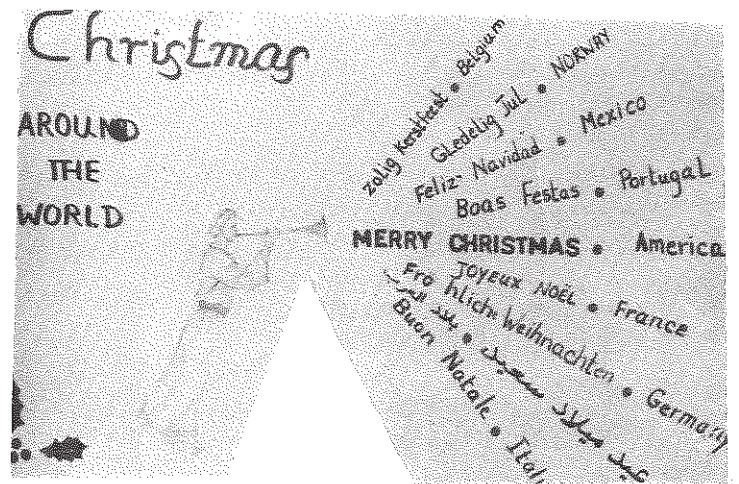 Christmas
AROUND
THE
WORLD
Zalig Kerstfeest • Belgium
Gledelig Jul • NORWAY
Feliz- Navidad • Mexico
Boas Festas • Portugal
MERRY CHRISTMAS • America
JOYEUX NOËL • France
Fro hliche Weihnachten • Germany
عيد ميلاد سعيد • العرب
Buon Natale •